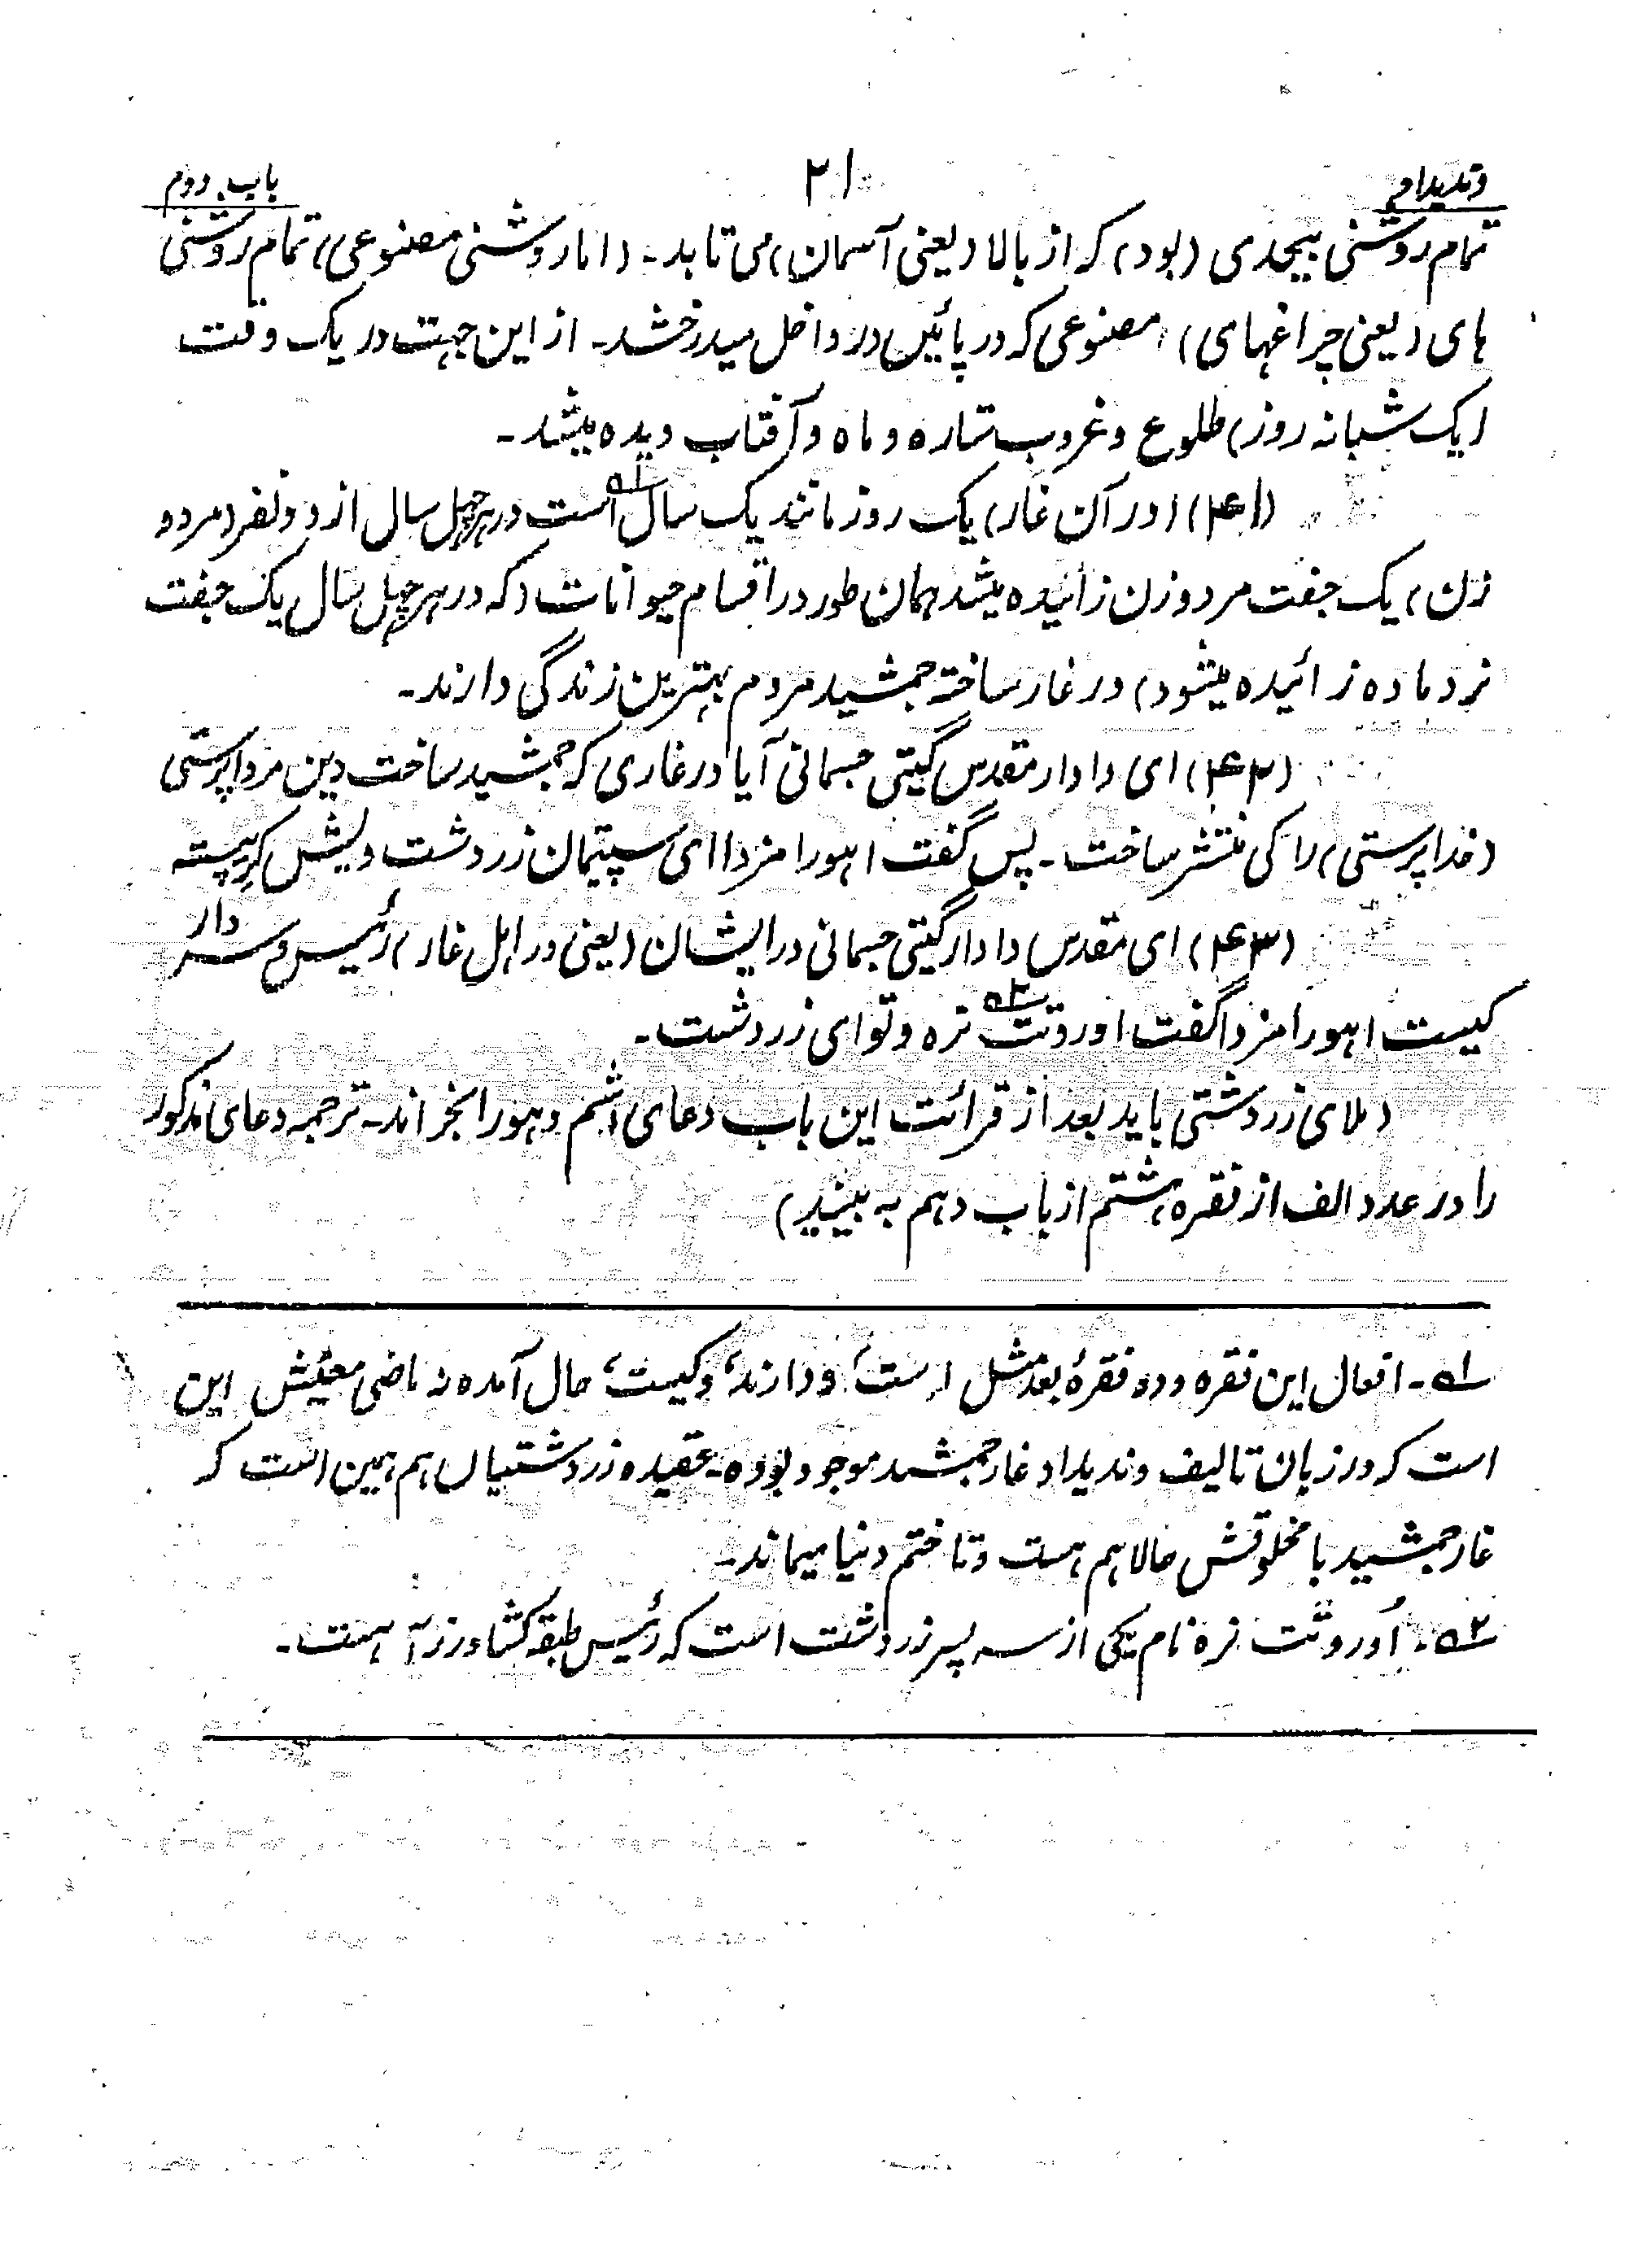 وندیداد ۲۱ باب دوم
تمام روشنی بیحدی (بود) که از بالا (یعنی آسمان) می تابد - (اما روشنی مصنوعی) تمام روشنی
های (یعنی چراغهای) مصنوعی که در پائین در داخل میدرخشد - از این جهت در یک وقت
(یک شبانه روز) طلوع و غروب ستاره و ماه و آفتاب دیده میشد -
(۴۱) (در آن غار) یک روز مانند یک سال ۵۱ است در هر چهل سال از دو نفر (مرد و
زن) یک جفت مرد و زن زائیده میشد همان طور در اقسام حیوانات (که در هر چهل سال یک جفت
نر و ماده زائیده میشود) در غار ساخته جمشید مردم بهترین زندگی دارند -
(۴۲) ای دادار مقدس گیتی جسمانی آیا در غاری که جمشید ساخت دین مزداپرستی
(خداپرستی) را کی منتشر ساخت - پس گفت اهورامزدا ای سپیتمان زردشت ویش کرپیته
(۴۳) ای مقدس دادار گیتی جسمانی در ایشان (یعنی در اهل غار) رئیس و سردار
کیست اهورامزدا گفت اوروتت ۵۲ نره و تو ای زردشت -
(ملای زردشتی باید بعد از قرائت این باب دعای اشم وهو را بخواند - ترجمه دعای مذکور
را در عدد الف از فقره هشتم از باب دهم به بینید)
۵۱ - افعال این فقره و دو فقرهٔ بعد مثل است، و دارند، و کیست، حال آمده نه ماضی معنیش این
است که در زمان تالیف وندیداد غار جمشید موجود بوده - عقیده زردشتیان هم همین است که
غار جمشید با مخلوقش حالا هم هست و تا ختم دنیا میماند -
۵۲ - اُوروتت نره نام یکی از سه پسر زردشت است که رئیس طبقه کشاورز آ هست -